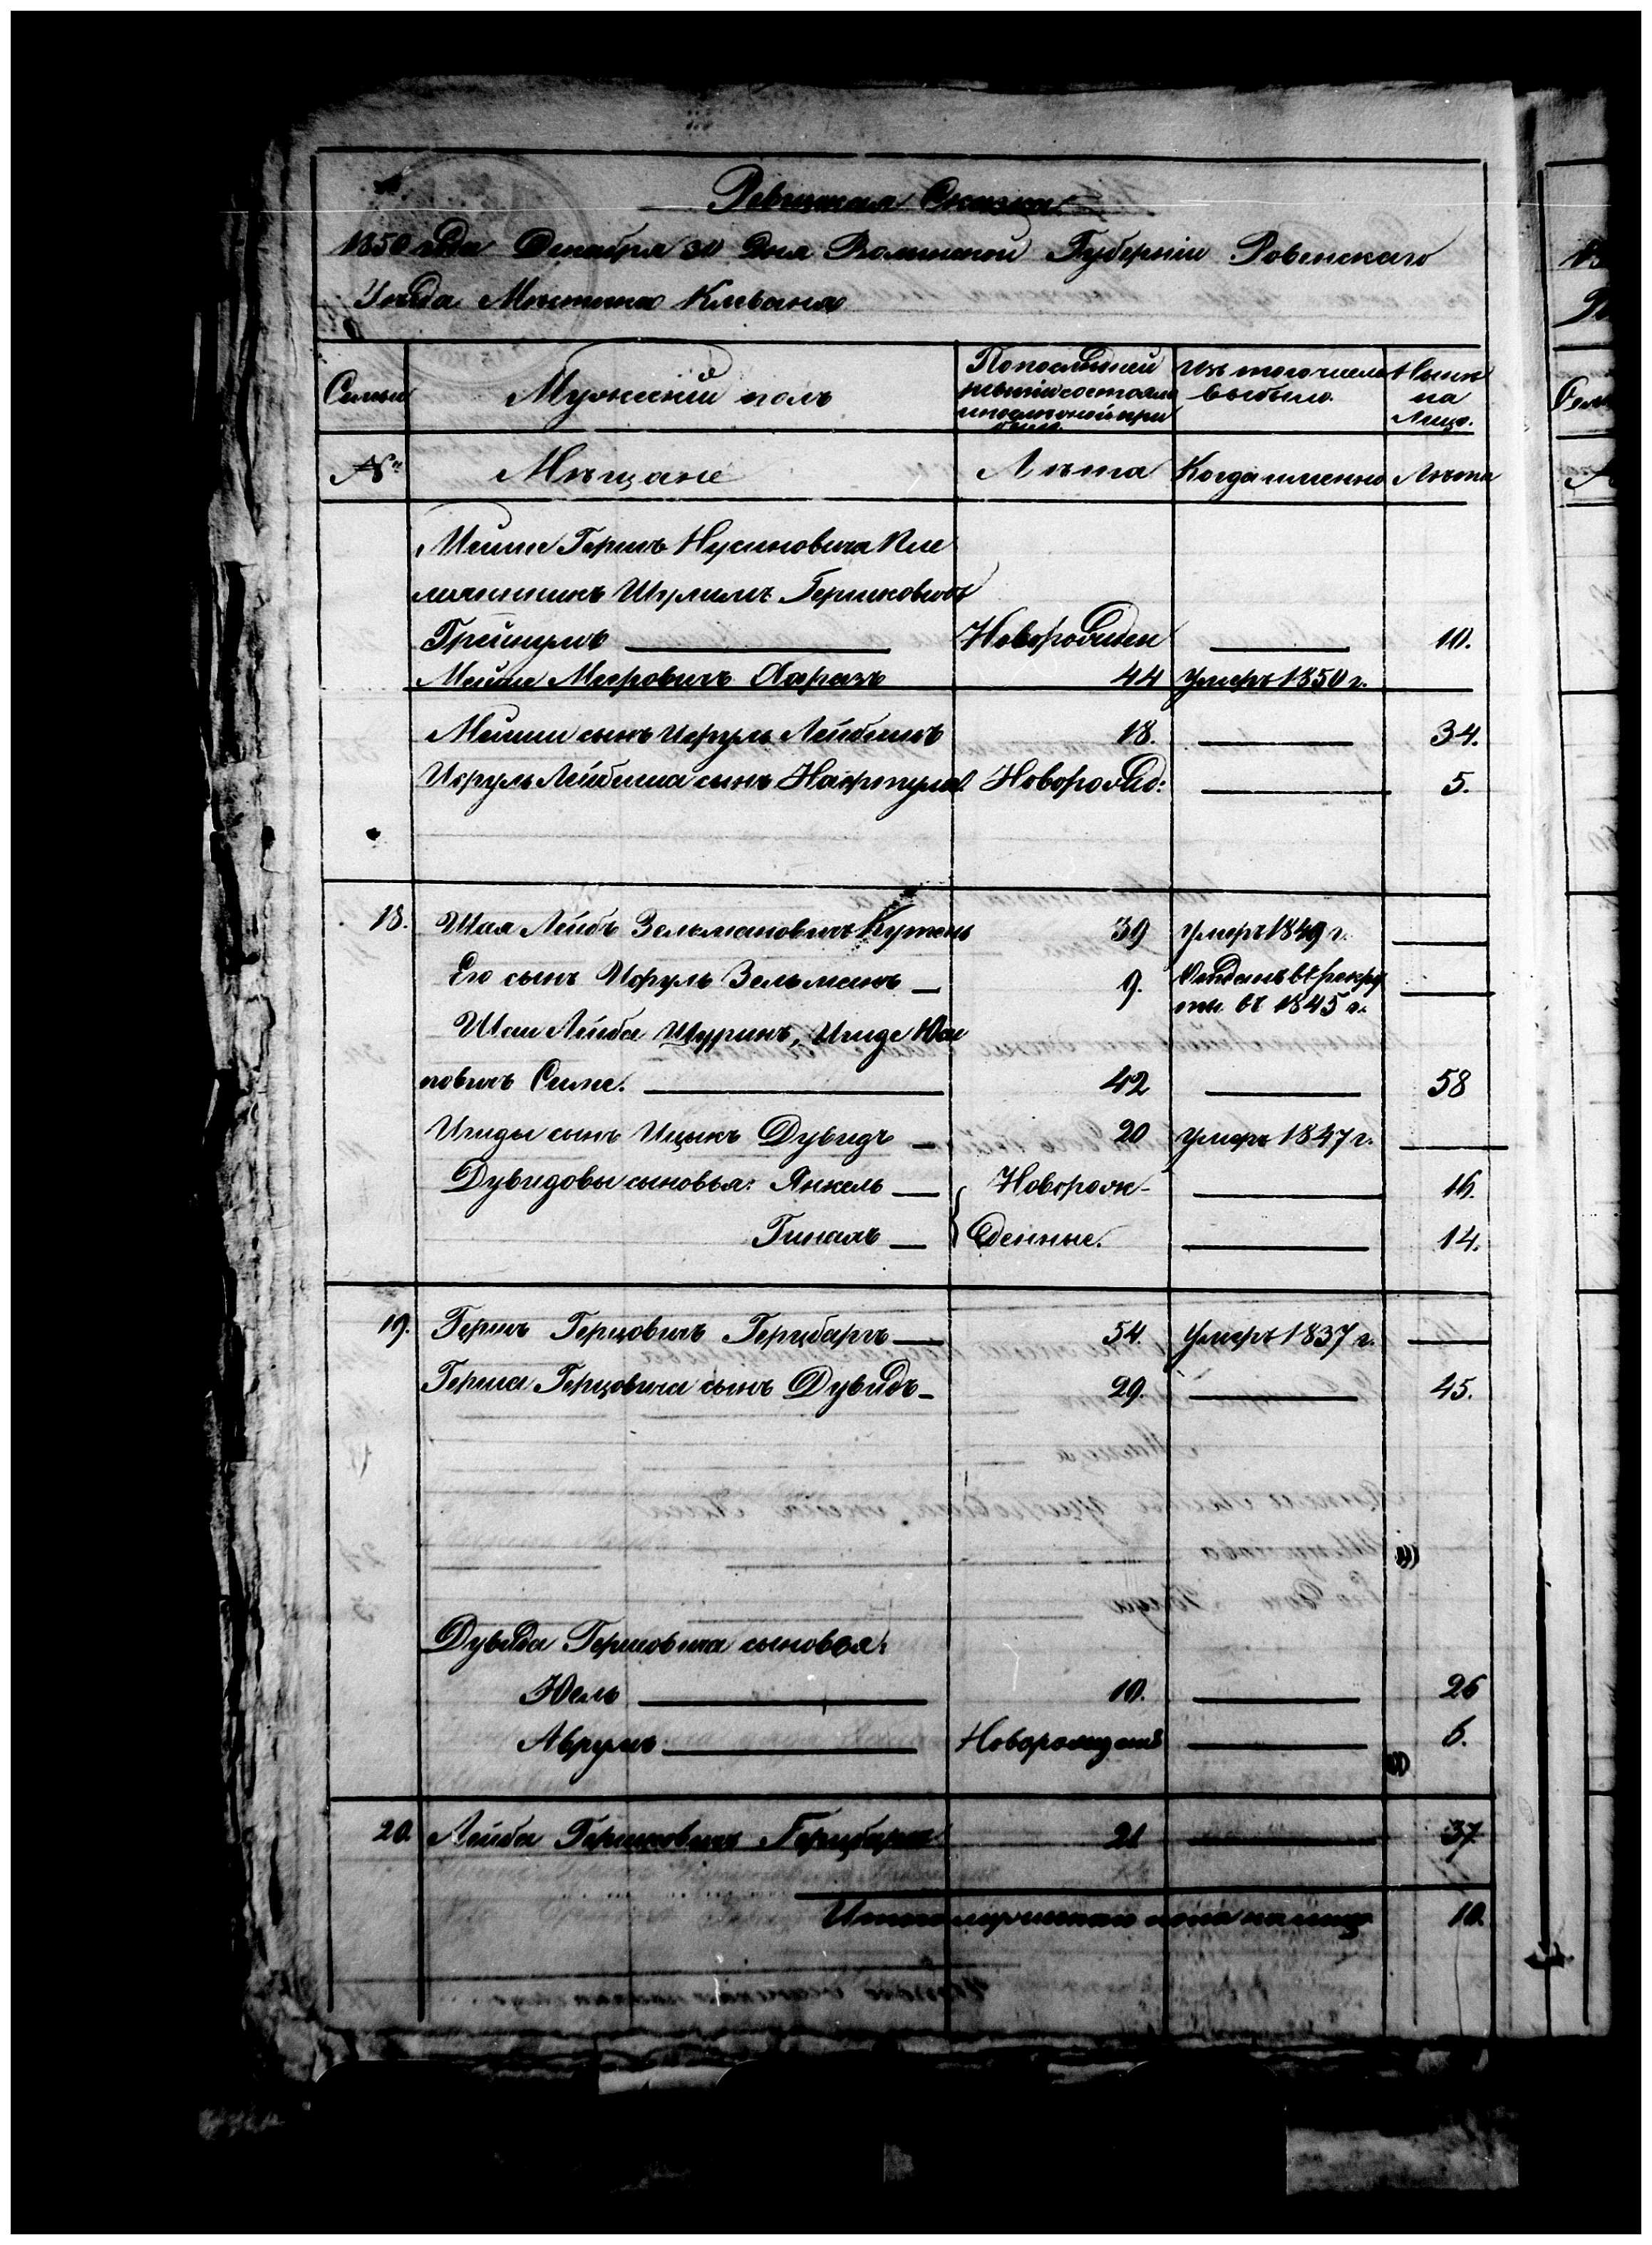 Ревизская Сказка
1850 года Декабря 30 дня Волынской Губерніи Ровенскаго
Уезда Местечка Клеваня
Семьи
Мужескій полъ
По последней ревизіи состояло и после оной прибыло.
Изъ того числа выбыло.
Ныне на Лицо.
№
Мещане
Лета
Когда именно
Лета
Мошка Гершъ Нусиновича Пле
мянникъ Шулимъ Гершковичъ
Новорожден 10.
Мошко Меэровичъ 44 Умеръ 1850 г.
Мошки сынъ Исруль Лейбишъ 18. 34.
Исруль Лейбиша сынъ Новорожд: 5.
18. Шая Лейбъ Зельмановичъ 39 Умеръ 1849 г.
Его сынъ Исруль Зельманъ 9. Отданъ въ рекру
ты въ 1845 г.
Шаи Лейба Шуринъ,
новичъ 42 58
сынъ Ицыкъ Дувидъ 20 Умеръ 1847 г.
Дувидовы сыновья: Янкель Новорож- 16.
денные. 14.
19. Гершъ Герцовичъ Герцбаргъ 54. Умеръ 1837 г.
Герша Герцовича сынъ Дувидъ 29. 45.
Дувида Гершовича сыновья:
Юель 10. 26
Аврумъ Новорожденный 6.
20. Лейба Гершковичъ Герцбаргъ 21 37
Итого мужескаго пола на лицо 10.